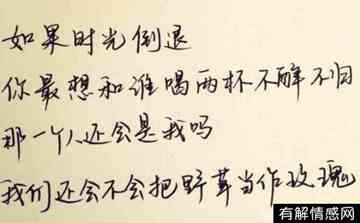 如果时光倒退
你最想和谁喝两杯不醉不归
那一个人还会是我吗
我们还会不会把野草当作玫瑰
有解情感网